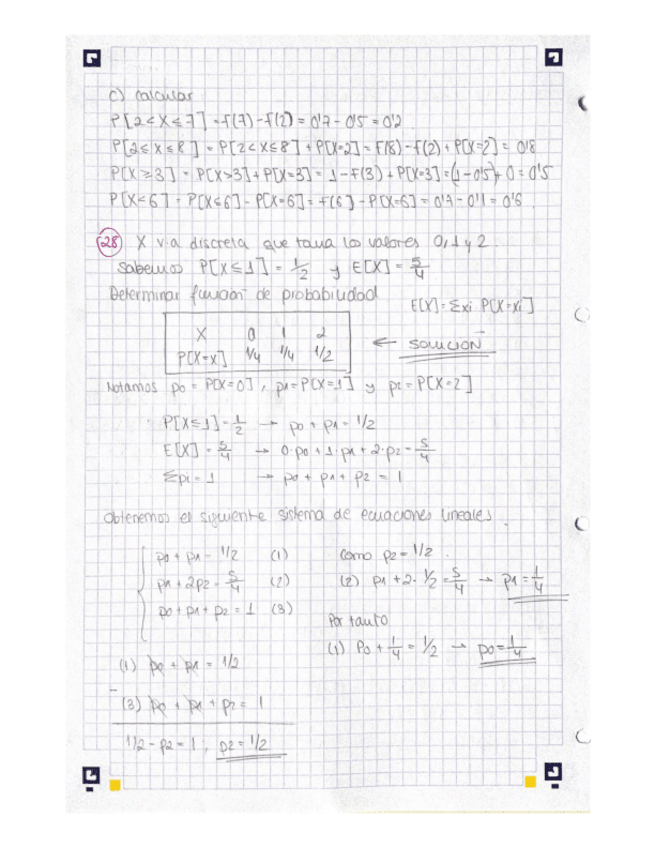 c) calcular
P[2<X≤7] = F(7)-F(2) = 0'7-0'5 = 0'2
P[2≤X≤8] = P[2<X≤8] + P[X=2] = F(8)-F(2) + P[X=2] = 0'8
P[X≥3] = P[X>3] + P[X=3] = 1-F(3) + P[X=3] = (1-0'5)+0 = 0'5
P[X<6] = P[X≤6] - P[X=6] = F(6) - P[X=6] = 0'7-0'1 = 0'6.
28 X v.a discreta que toma los valores 0,1 y 2.
Sabemos P[X≤1] = 1/2 y E[X] = 5/4
Determinar función de probabilidad
E[X] = Σxi P[X=xi]
X 0 1 2
P[X=x] 1/4 1/4 1/2
← SOLUCIÓN
Notamos p0 = P[X=0], p1 = P[X=1] y p2 = P[X=2]
P[X≤1] = 1/2 → p0 + p1 = 1/2
E[X] = 5/4 → 0·p0 + 1·p1 + 2·p2 = 5/4
Σpi = 1 → p0 + p1 + p2 = 1
Obtenemos el siguiente sistema de ecuaciones lineales.
p0 + p1 = 1/2 (1)
p1 + 2p2 = 5/4 (2)
p0 + p1 + p2 = 1 (3)
(1) p0 + p1 = 1/2
-
(3) p0 + p1 + p2 = 1
1/2 - p2 = 1; p2 = 1/2
como p2 = 1/2.
(2) p1 + 2·1/2 = 5/4 → p1 = 1/4
Por tanto
(1) P0 + 1/4 = 1/2 → p0 = 1/4